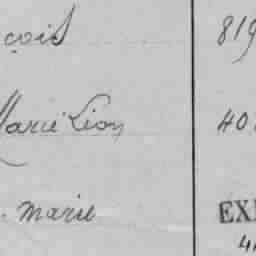 çois 819
Marie Léon 40
. Marie EX
4